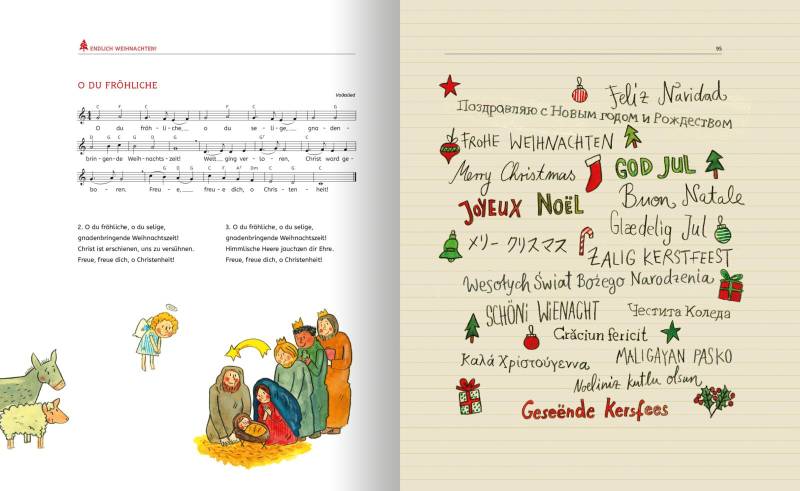 ENDLICH WEIHNACHTEN!
O DU FRÖHLICHE
Volkslied
C F C C F C G
O du fröh - li - che, o du se - li - ge, gna - den -
C G D G D G G
brin - gen - de Weih - nachts - zeit! Welt ging ver - lo - ren, Christ ward ge -
C G C F C Am Dm C G C
bo - ren. Freu - e, freu - e dich, o Chris - ten - heit!
2. O du fröhliche, o du selige,
gnadenbringende Weihnachtszeit!
Christ ist erschienen, uns zu versühnen.
Freue, freue dich, o Christenheit!
3. O du fröhliche, o du selige,
gnadenbringende Weihnachtszeit!
Himmlische Heere jauchzen dir Ehre.
Freue, freue dich, o Christenheit!
95
Feliz Navidad
Поздравляю с Новым годом и Рождеством
FROHE WEIHNACHTEN
Merry Christmas
GOD JUL
JOYEUX NOËL
Buon Natale
Glædelig Jul
メリー クリスマス
ZALIG KERSTFEEST
Wesołych Świąt Bożego Narodzenia
SCHÖNI WIENACHT
Честита Коледа
Crăciun fericit
Καλά Χριστούγεννα
MALIGAYAN PASKO
Noeliniz kutlu olsun
Geseënde Kersfees